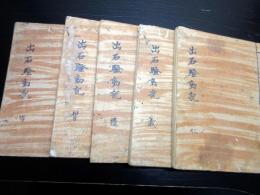 出石騒動記 仁
出石騒動記 義
出石騒動記 禮
出石騒動記 智
出石騒動記